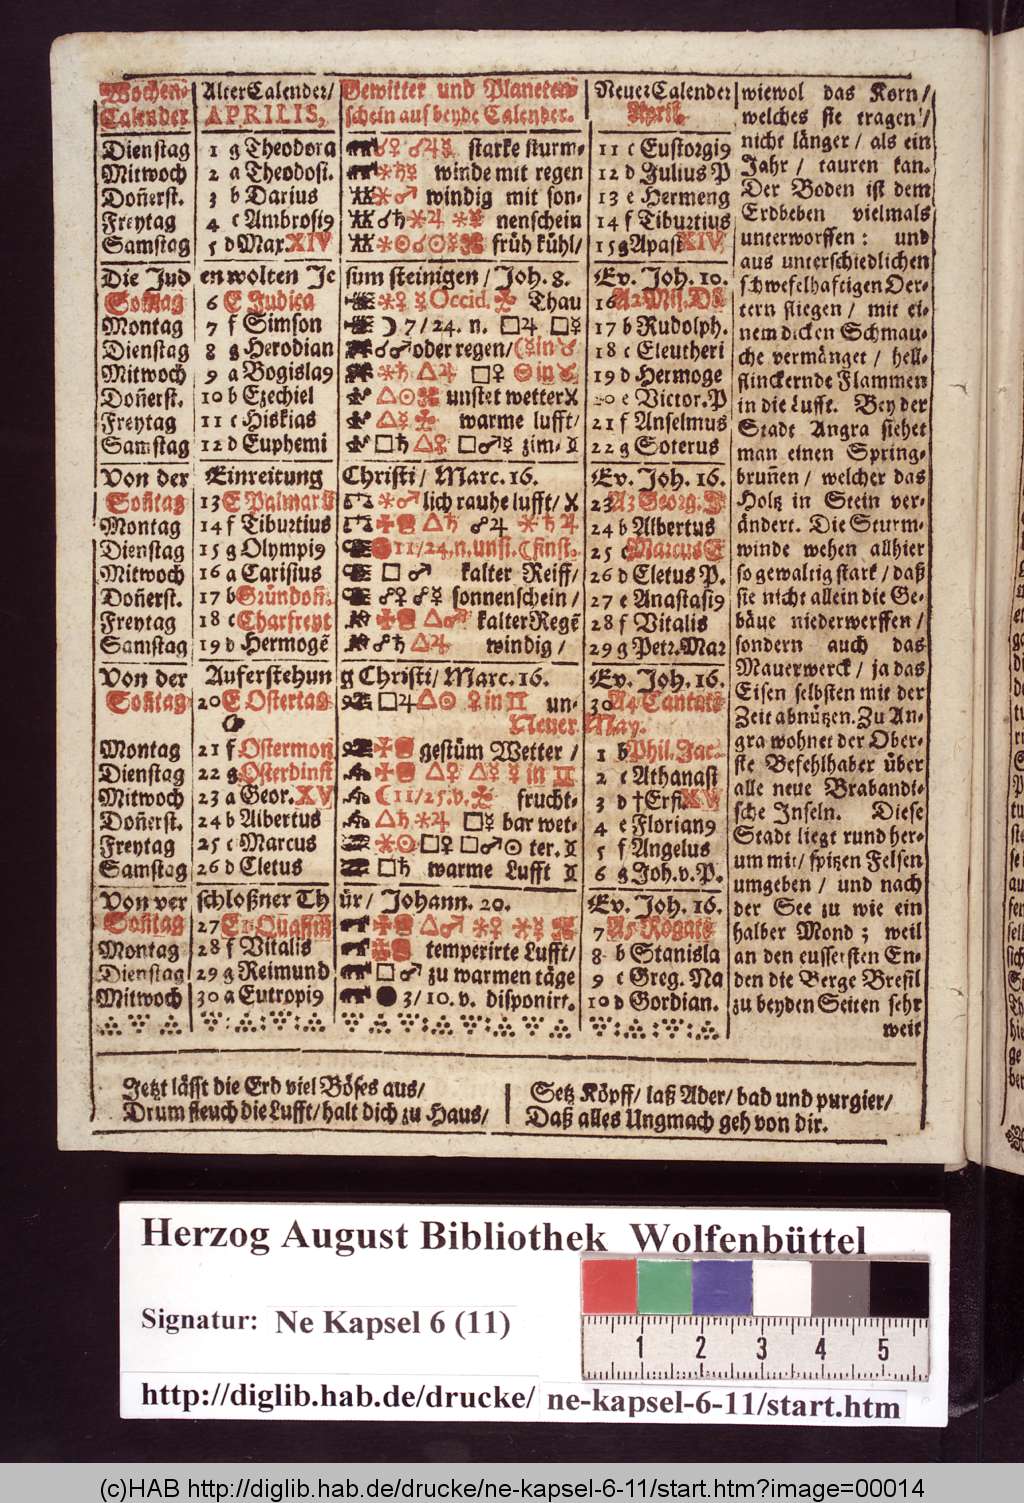 Wochen- Alter Calender/ Gewitter und Planeten- Neuer Calender
Calender APRILIS, schein aus beyde Calender. April.
Dienstag 1 g Theodora starke sturm- 11 c Eustorgi9
Mittwoch 2 a Theodosi. winde mit regen 12 d Julius P
Doñerst. 3 b Darius windig mit son- 13 e Hermeng
Freytag 4 c Ambrosi9 nenschein 14 f Tiburtius
Samstag 5 d Max. XIV früh kühl/ 15 g Apast XIV
Die Jud en wolten Je sum steinigen/ Joh. 8. Ev. Joh. 10.
Soñtag 6 E Judica ☿ Occid. Thau 16
Montag 7 f Simson ☽ 7/24. n. □♃ □☿ 17 b Rudolph.
Dienstag 8 g Herodian ☌♂ oder regen/ (☿ in ♉ 18 c Eleutheri
Mittwoch 9 a Bogisla9 ⚹♄ △♃ □♀ ☉ in ♉ 19 d Hermoge
Doñerst. 10 b Ezechiel △☉ unstet wetter 20 e Victor. P
Freytag 11 c Hiskias △☿ warme lufft/ 21 f Anselmus
Samstag 12 d Euphemi □♄ △♀ □♂☿ zim- 22 g Soterus
Von der Einreitung Christi/ Marc. 16. Ev. Joh. 16.
Soñtag 13 E Palmar ⚹♂ lich rauhe lufft/ 23 Georg.
Montag 14 f Tiburtius △♄ ☍♃ ⚹♄♃ 24 b Albertus
Dienstag 15 g Olympi9 11/24. n. unsi. ☾ finst. 25 c Marcus E
Mittwoch 16 a Carisius □ ♂ kalter Reiff/ 26 d Cletus P.
Doñerst. 17 b Gründoñ. ☍♀ ☍☿ sonnenschein/ 27 e Anastasi9
Freytag 18 c Charfreyt △♂ kalter Regẽ 28 f Vitalis
Samstag 19 d Hermogẽ ☍♄ △♃ windig/ 29 g Petr. Mar
Von der Auferstehun g Christi/ Marc. 16. Ev. Joh. 16.
Soñtag 20 E Ostertag □♃ △☉ ♀ in ♊ un- 30 Cantate
Neuer May.
Montag 21 f Ostermon gestüm Wetter/ 1 b Phil. Jac.
Dienstag 22 g Osterdinst △♀ △☿ ☿ in ♊ 2 c Athanast
Mittwoch 23 a Geor. XV ☾ 11/25. v. frucht- 3 d † Erfi XV
Doñerst. 24 b Albertus △♄ ⚹♃ □☿ bar wet- 4 e Florian9
Freytag 25 c Marcus ⚹☉ □♀ □♂☉ ter. 5 f Angelus
Samstag 26 d Cletus □♄ warme Lufft 6 g Joh. v. P.
Von ver schloßner Th ür/ Johann. 20. Ev. Joh. 16.
Soñtag 27 △♂ ⚹♀ ⚹☿ 7 Rogate
Montag 28 f Vitalis temperirte Lufft/ 8 b Stanisla
Dienstag 29 g Reimund □ ♂ zu warmen täge 9 c Greg. Na
Mittwoch 30 a Eutropi9 ● 3/10. v. disponirt. 10 d Gordian.
wiewol das Korn/
welches sie tragen/
nicht länger/ als ein
Jahr/ tauren kan.
Der Boden ist dem
Erdbeben vielmals
unterworffen: und
aus unterschiedlichen
schwefelhaftigen Oer-
tern fliegen/ mit ei-
nem dicken Schmau-
che vermänget/ hell-
flinckernde Flammen
in die Lufft. Bey der
Stadt Angra siehet
man einen Spring-
bruñen/ welcher das
Holtz in Stein ver-
ändert. Die Sturm-
winde wehen allhier
so gewaltig stark/ daß
sie nicht allein die Ge-
bäue niederwerffen/
sondern auch das
Mauerwerck/ ja das
Eisen selbsten mit der
Zeit abnützen. Zu An-
gra wohnet der Ober-
ste Befehlhaber über
alle neue Brabandi-
sche Inseln. Diese
Stadt liegt rund her-
um mit/ spitzen Felsen
umgeben/ und nach
der See zu wie ein
halber Mond; weil
an den eussersten En-
den die Berge Bresil
zu beyden Seiten sehr
weit
Jetzt lässt die Erd viel Böses aus/
Drum fleuch die Lufft/ halt dich zu Haus/
Setz Köpff/ laß Ader/ bad und purgier/
Daß alles Ungmach geh von dir.
Herzog August Bibliothek Wolfenbüttel
Signatur: Ne Kapsel 6 (11)
1 2 3 4 5
http://diglib.hab.de/drucke/ ne-kapsel-6-11/start.htm
(c)HAB http://diglib.hab.de/drucke/ne-kapsel-6-11/start.htm?image=00014